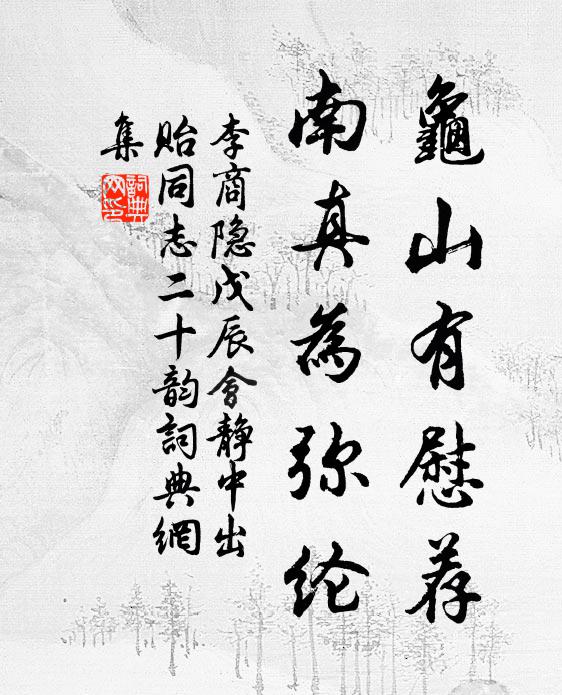 龜山有慰荐
南真為弥纶
李商隐戊辰會静中出
貽同志二十韵詞典網
集
詞典网印